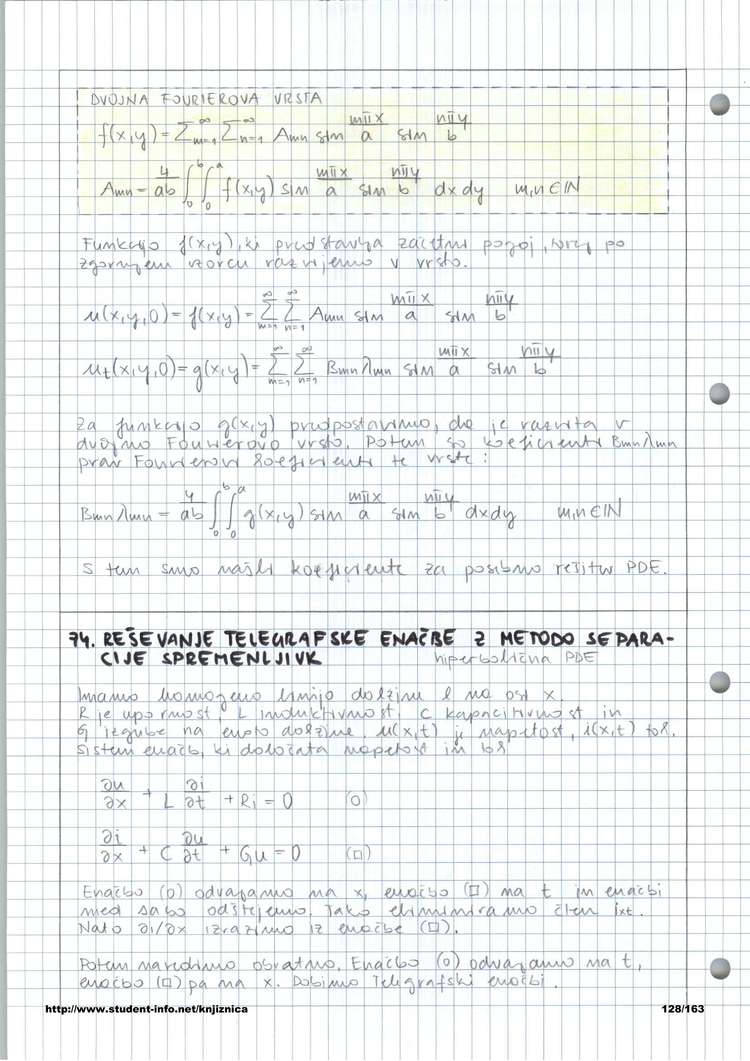 DVOJNA FOURIEROVA VRSTA
f(x,y) = Σ_{m=1}^∞ Σ_{n=1}^∞ Amn sin mπx/a sin nπy/b
Amn = 4/ab ∫_0^b ∫_0^a f(x,y) sin mπx/a sin nπy/b dx dy m,n ∈ IN
Funkcijo f(x,y), ki predstavlja začetni pogoj, torej po
zgornjem vzorcu razvijemo v vrsto.
u(x,y,0) = f(x,y) = Σ_{m=1}^∞ Σ_{n=1}^∞ Amn sin mπx/a sin nπy/b
ut(x,y,0) = g(x,y) = Σ_{m=1}^∞ Σ_{n=1}^∞ Bmn λmn sin mπx/a sin nπy/b
Za funkcijo g(x,y) predpostavimo, da je razvita v
dvojno Fourierovo vrsto. Potem so koeficienti Bmn λmn
prav Fourierovi koeficienti te vrste:
Bmn λmn = 4/ab ∫_0^b ∫_0^a g(x,y) sin mπx/a sin nπy/b dx dy m,n ∈ IN
S tem smo našli koeficiente za posebno rešitev PDE.
74. REŠEVANJE TELEGRAFSKE ENAČBE Z METODO SEPARA-
CIJE SPREMENLJIVK hiperbolična PDE
Imamo homogeno linijo dolžine l na osi x.
R je upornost, L induktivnost, C kapacitivnost in
G izgube na enoto dolžine, u(x,t) je napetost, i(x,t) tok.
Sistem enačb, ki določata napetost in tok
∂u/∂x + L ∂i/∂t + Ri = 0 (○)
∂i/∂x + C ∂u/∂t + Gu = 0 (□)
Enačbo (○) odvajamo na x, enačbo (□) na t in enačbi
med sabo odštejemo. Tako eliminiramo člen ixt.
Nato ∂i/∂x izrazimo iz enačbe (□).
Potem naredimo obratno. Enačbo (○) odvajamo na t,
enačbo (□) pa na x. Dobimo Telegrafski enačbi.
http://www.student-info.net/knjiznica 128/163